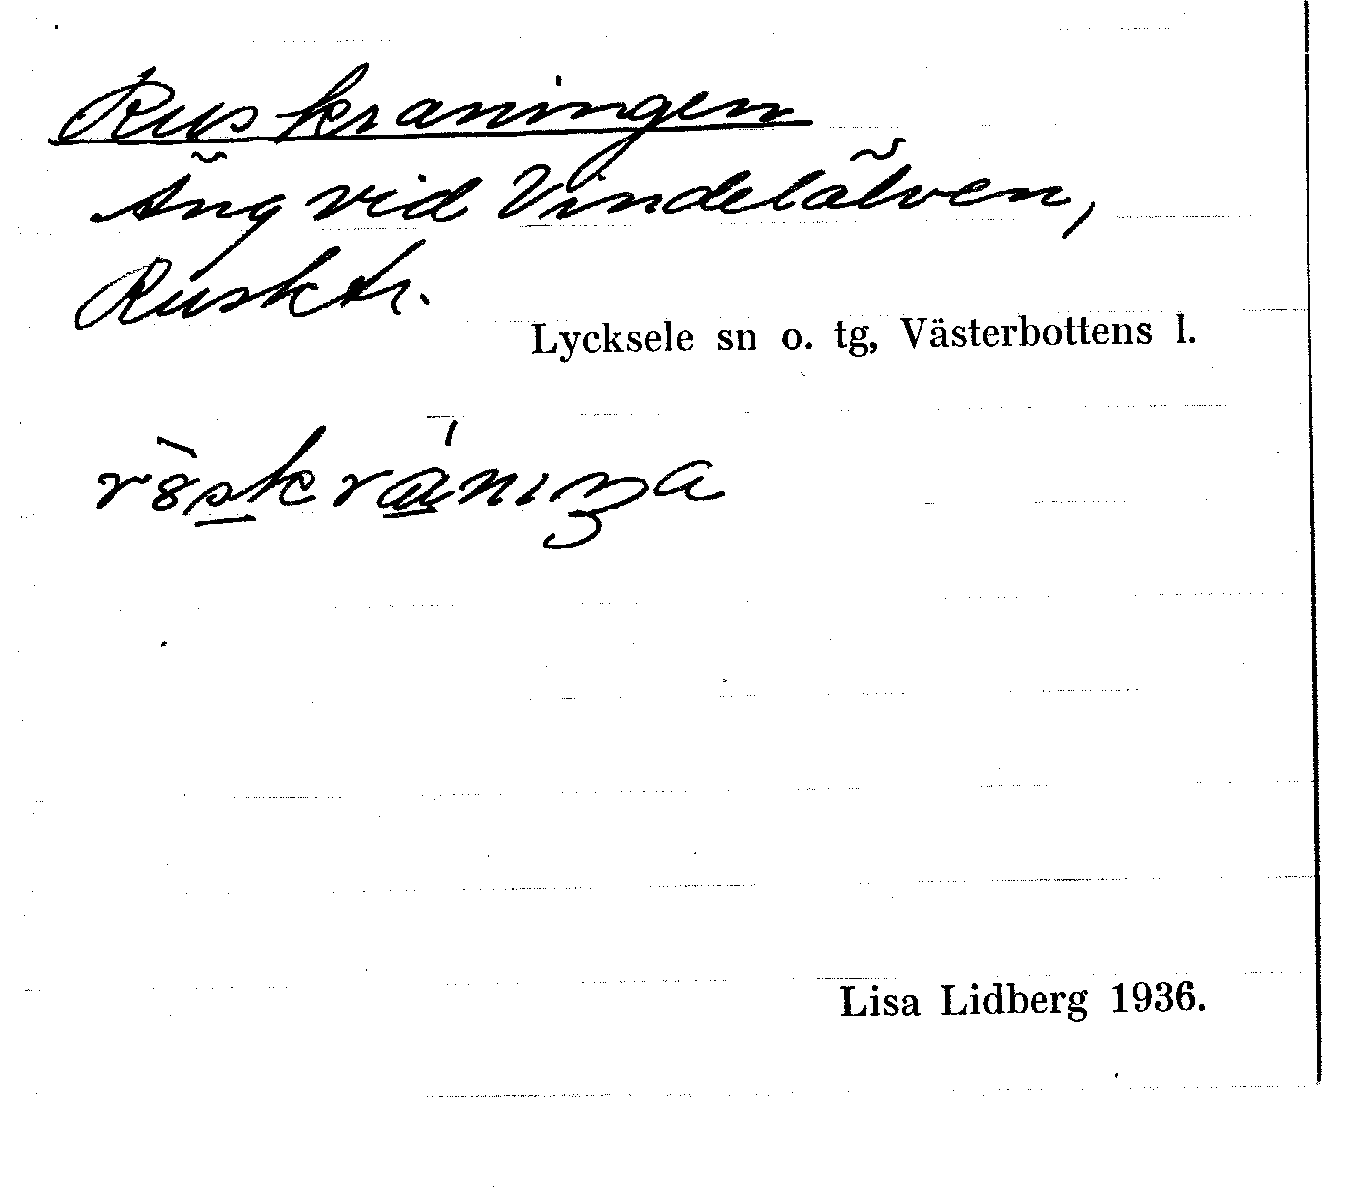 Ruskraningen
Äng vid Vindelälven,
Rusktr.
Lycksele sn o. tg, Västerbottens l.
Lisa Lidberg 1936.